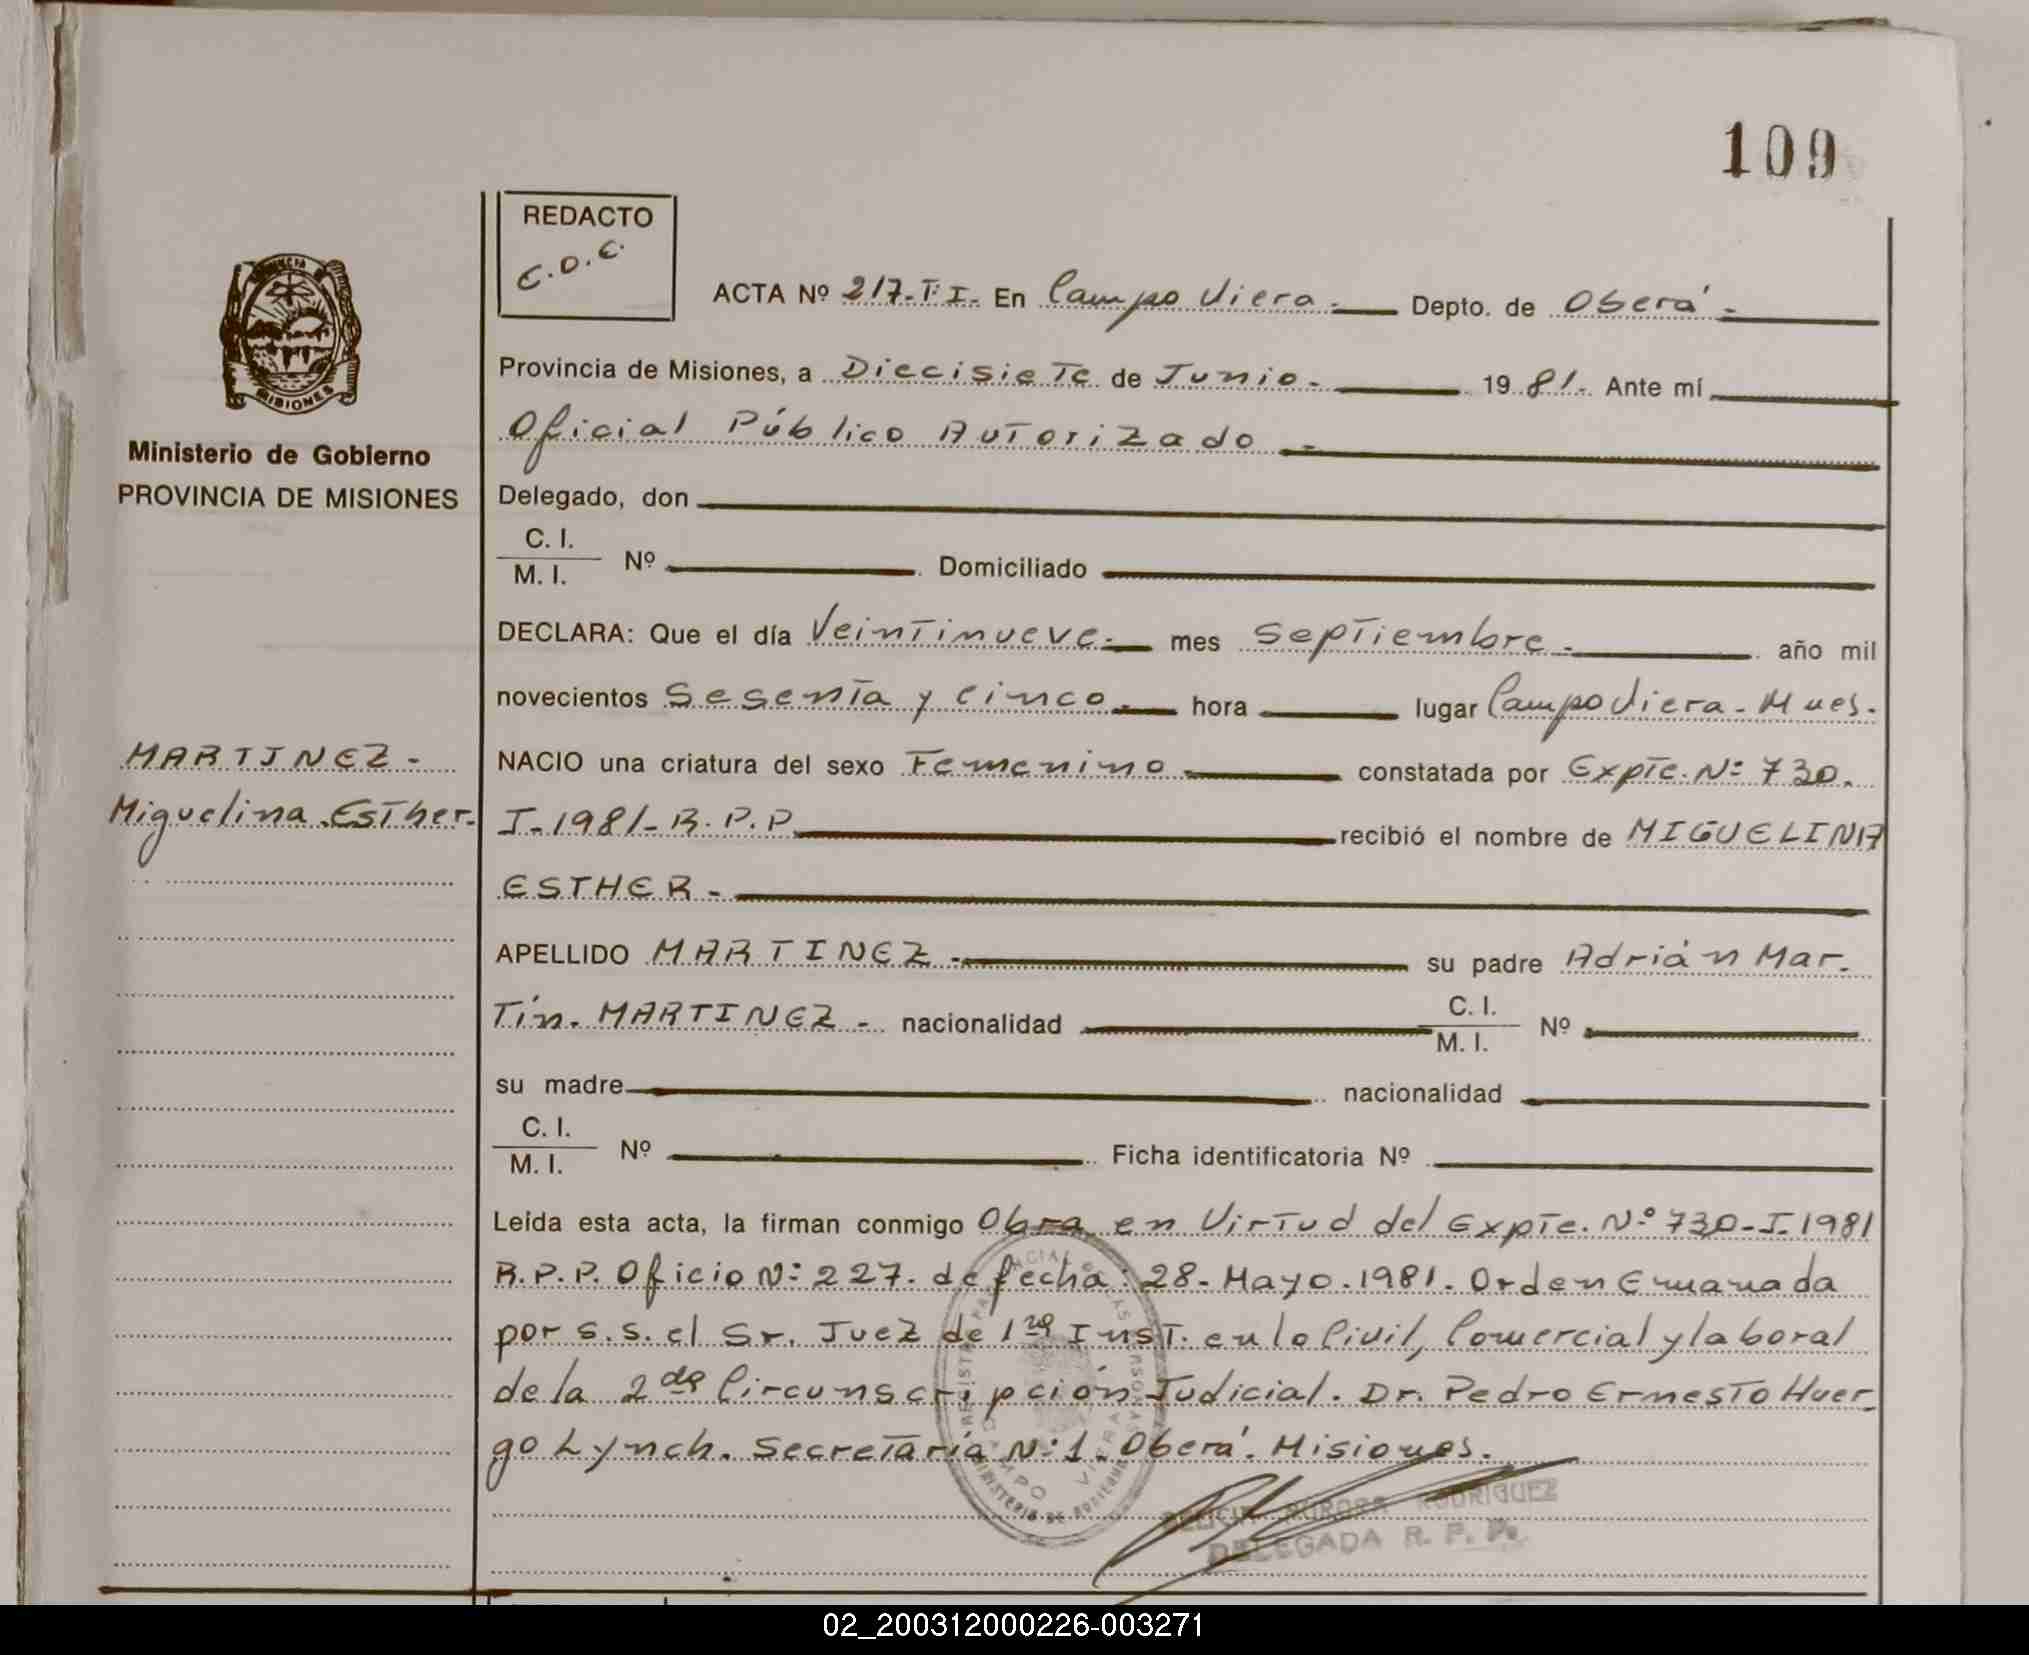 109
REDACTO
C.D.C.
ACTA Nº 217-T.I. En Campo Viera.- Depto. de Oberá.-
Provincia de Misiones, a Diecisiete de Junio.- 1981.- Ante mí
Oficial Público Autorizado.-
Ministerio de Gobierno
PROVINCIA DE MISIONES
Delegado, don
C. I.
M. I.
Nº Domiciliado
DECLARA: Que el día Veintinueve.- mes Septiembre.- año mil
novecientos Sesenta y Cinco.- hora lugar Campo Viera-Mnes.
MARTINEZ-
Miguelina Esther-
NACIO una criatura del sexo Femenino.- constatada por Expte. Nº 730.
I-1981-R.P.P. recibió el nombre de MIGUELINA
ESTHER-
APELLIDO MARTINEZ.- su padre Adrián Mar-
tín. MARTINEZ- nacionalidad C. I. M. I. Nº
su madre nacionalidad
C. I.
M. I.
Nº Ficha identificatoria Nº
Leída esta acta, la firman conmigo Obra en Virtud del Expte. Nº 730-I-1981
R.P.P. Oficio Nº 227. de fecha: 28-Mayo-1981. Orden Emanada
por S.S. el Sr. Juez de 1ra Inst. en lo Civil, Comercial y laboral
de la 2da Circunscripción Judicial. Dr. Pedro Ernesto Huer-
go Lynch. Secretaría Nº 1. Oberá. Misiones.
AURORA RODRIGUEZ
DELEGADA R. P. P.
CAMPO VIERA
02_200312000226-003271